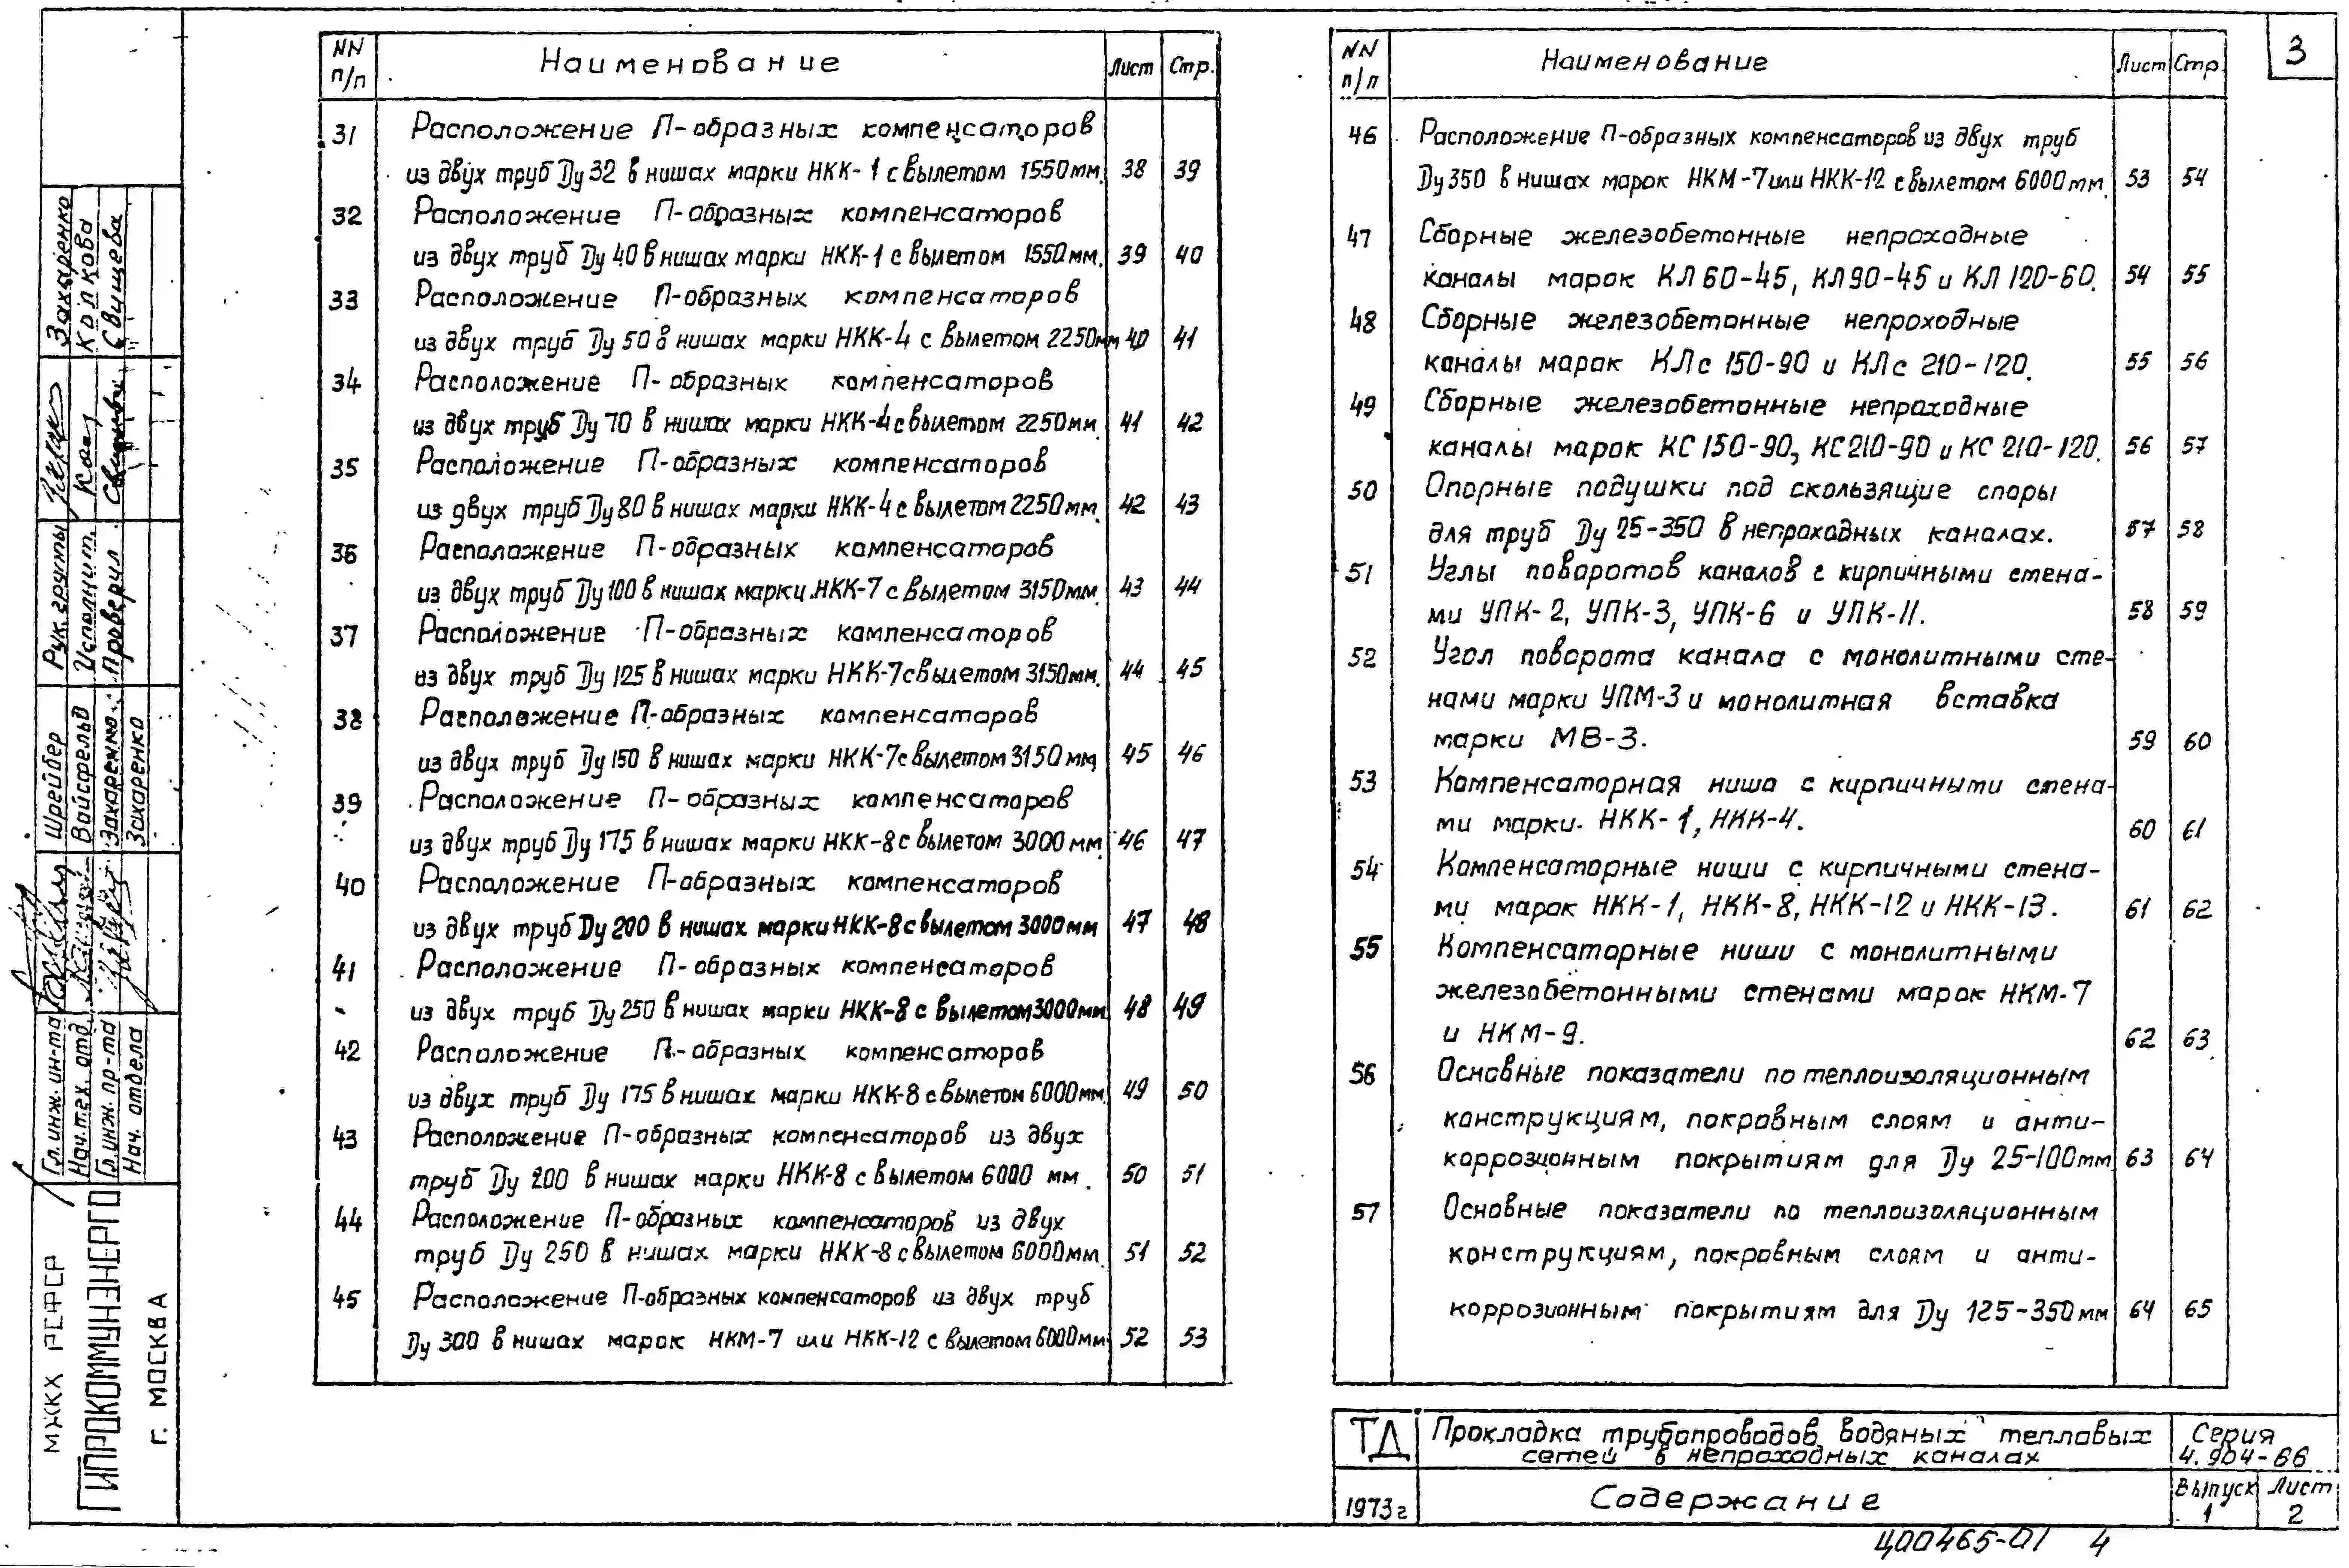 3
NN п/п Наименование Лист Стр.
31 Расположение П-образных компенсаторов
из двух труб Ду 32 в нишах марки НКК-1 с вылетом 1550мм. 38 39
32 Расположение П-образных компенсаторов
из двух труб Ду 40 в нишах марки НКК-1 с вылетом 1550мм. 39 40
33 Расположение П-образных компенсаторов
из двух труб Ду 50 в нишах марки НКК-4 с вылетом 2250мм 40 41
34 Расположение П-образных компенсаторов
из двух труб Ду 70 в нишах марки НКК-4 с вылетом 2250мм. 41 42
35 Расположение П-образных компенсаторов
из двух труб Ду 80 в нишах марки НКК-4 с вылетом 2250мм. 42 43
36 Расположение П-образных компенсаторов
из двух труб Ду 100 в нишах марки НКК-7 с вылетом 3150мм. 43 44
37 Расположение П-образных компенсаторов
из двух труб Ду 125 в нишах марки НКК-7 с вылетом 3150мм. 44 45
38 Расположение П-образных компенсаторов
из двух труб Ду 150 в нишах марки НКК-7 с вылетом 3150мм 45 46
39 Расположение П-образных компенсаторов
из двух труб Ду 175 в нишах марки НКК-8 с вылетом 3000мм. 46 47
40 Расположение П-образных компенсаторов
из двух труб Ду 200 в нишах марки НКК-8 с вылетом 3000мм 47 48
41 Расположение П-образных компенсаторов
из двух труб Ду 250 в нишах марки НКК-8 с вылетом 3000мм 48 49
42 Расположение П-образных компенсаторов
из двух труб Ду 175 в нишах марки НКК-8 с вылетом 6000мм. 49 50
43 Расположение П-образных компенсаторов из двух
труб Ду 200 в нишах марки НКК-8 с вылетом 6000 мм. 50 51
44 Расположение П-образных компенсаторов из двух
труб Ду 250 в нишах марки НКК-8 с вылетом 6000мм. 51 52
45 Расположение П-образных компенсаторов из двух труб
Ду 300 в нишах марок НКМ-7 или НКК-12 с вылетом 6000мм 52 53
NN п/п Наименование Лист Стр.
46 Расположение П-образных компенсаторов из двух труб
Ду 350 в нишах марок НКМ-7 или НКК-12 с вылетом 6000мм. 53 54
47 Сборные железобетонные непроходные
каналы марок КЛ 60-45, КЛ 90-45 и КЛ 120-60. 54 55
48 Сборные железобетонные непроходные
каналы марок КЛс 150-90 и КЛс 210-120. 55 56
49 Сборные железобетонные непроходные
каналы марок КС 150-90, КС 210-90 и КС 210-120. 56 57
50 Опорные подушки под скользящие споры
для труб Ду 25-350 в непроходных каналах. 57 58
51 Углы поворотов каналов с кирпичными стена-
ми УПК-2, УПК-3, УПК-6 и УПК-11. 58 59
52 Угол поворота канала с монолитными сте-
нами марки УПМ-3 и монолитная вставка
марки МВ-3. 59 60
53 Компенсаторная ниша с кирпичными стена-
ми марки НКК-1, НКК-4. 60 61
54 Компенсаторные ниши с кирпичными стена-
ми марок НКК-1, НКК-8, НКК-12 и НКК-13. 61 62
55 Компенсаторные ниши с монолитными
железобетонными стенами марок НКМ-7
и НКМ-9. 62 63
56 Основные показатели по теплоизоляционным
конструкциям, покровным слоям и анти-
коррозионным покрытиям для Ду 25-100мм 63 64
57 Основные показатели по теплоизоляционным
конструкциям, покровным слоям и анти-
коррозионным покрытиям для Ду 125-350мм 64 65
ТД Прокладка трубопроводов водяных тепловых
сетей в непроходных каналах
Серия
4.904-66
1973г Содержание
Выпуск 1 Лист 2
Ц00465-01 4
МЖКХ РСФСР
ГИПРОКОММУНЭНЕРГО
г. МОСКВА
Гл. инж. ин-та Шрейбер
Нач. тех. отд. Вайсфельд
Гл. инж. пр-та Захаренко
Нач. отдела Захаренко
Рук. группы Захаренко
Исполнит. Колкова
Проверил Свищева